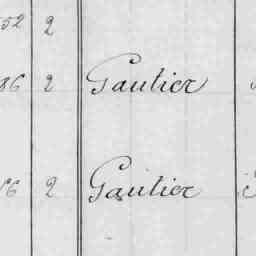 52 2
86 2 Gautier
56 2 Gautier